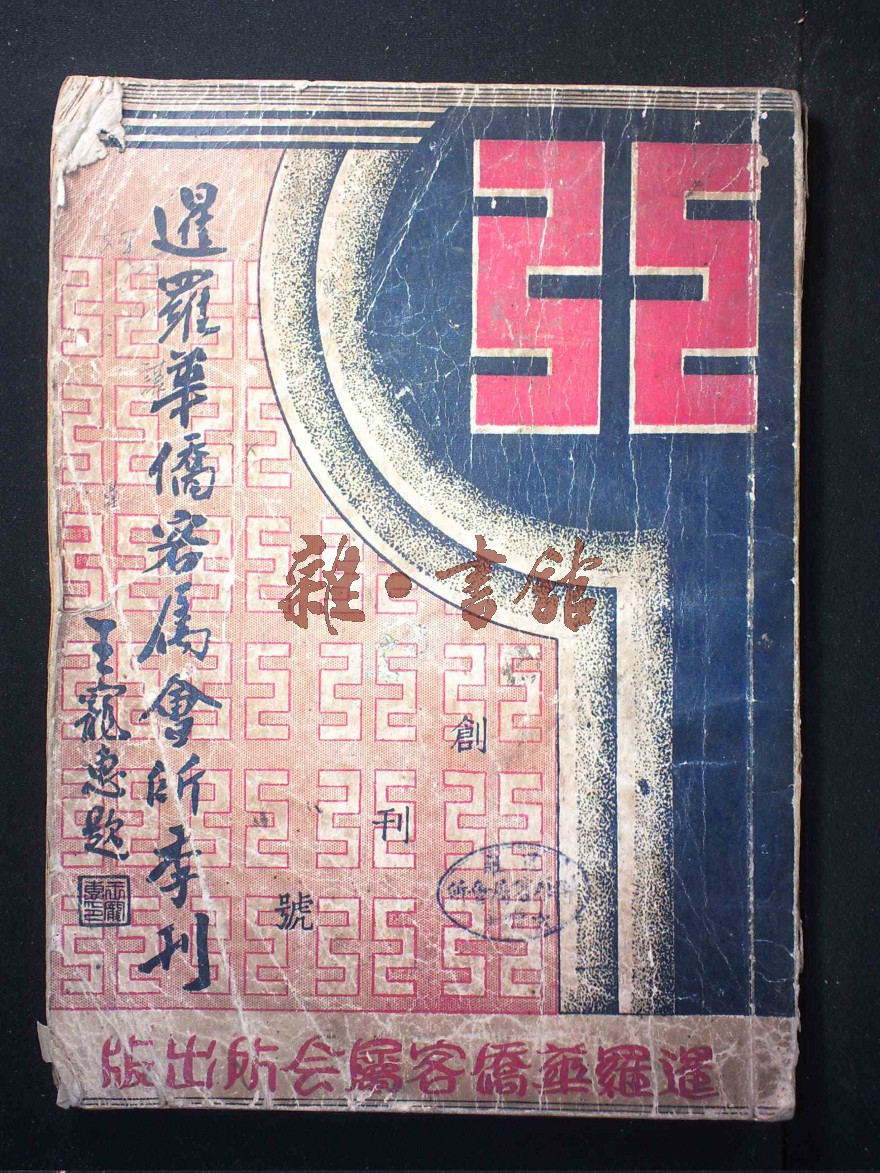 暹羅華僑客属會所季刊
王寵惠題
王寵惠印
雜·書館
創刊號
暹羅華僑客屬会所出版